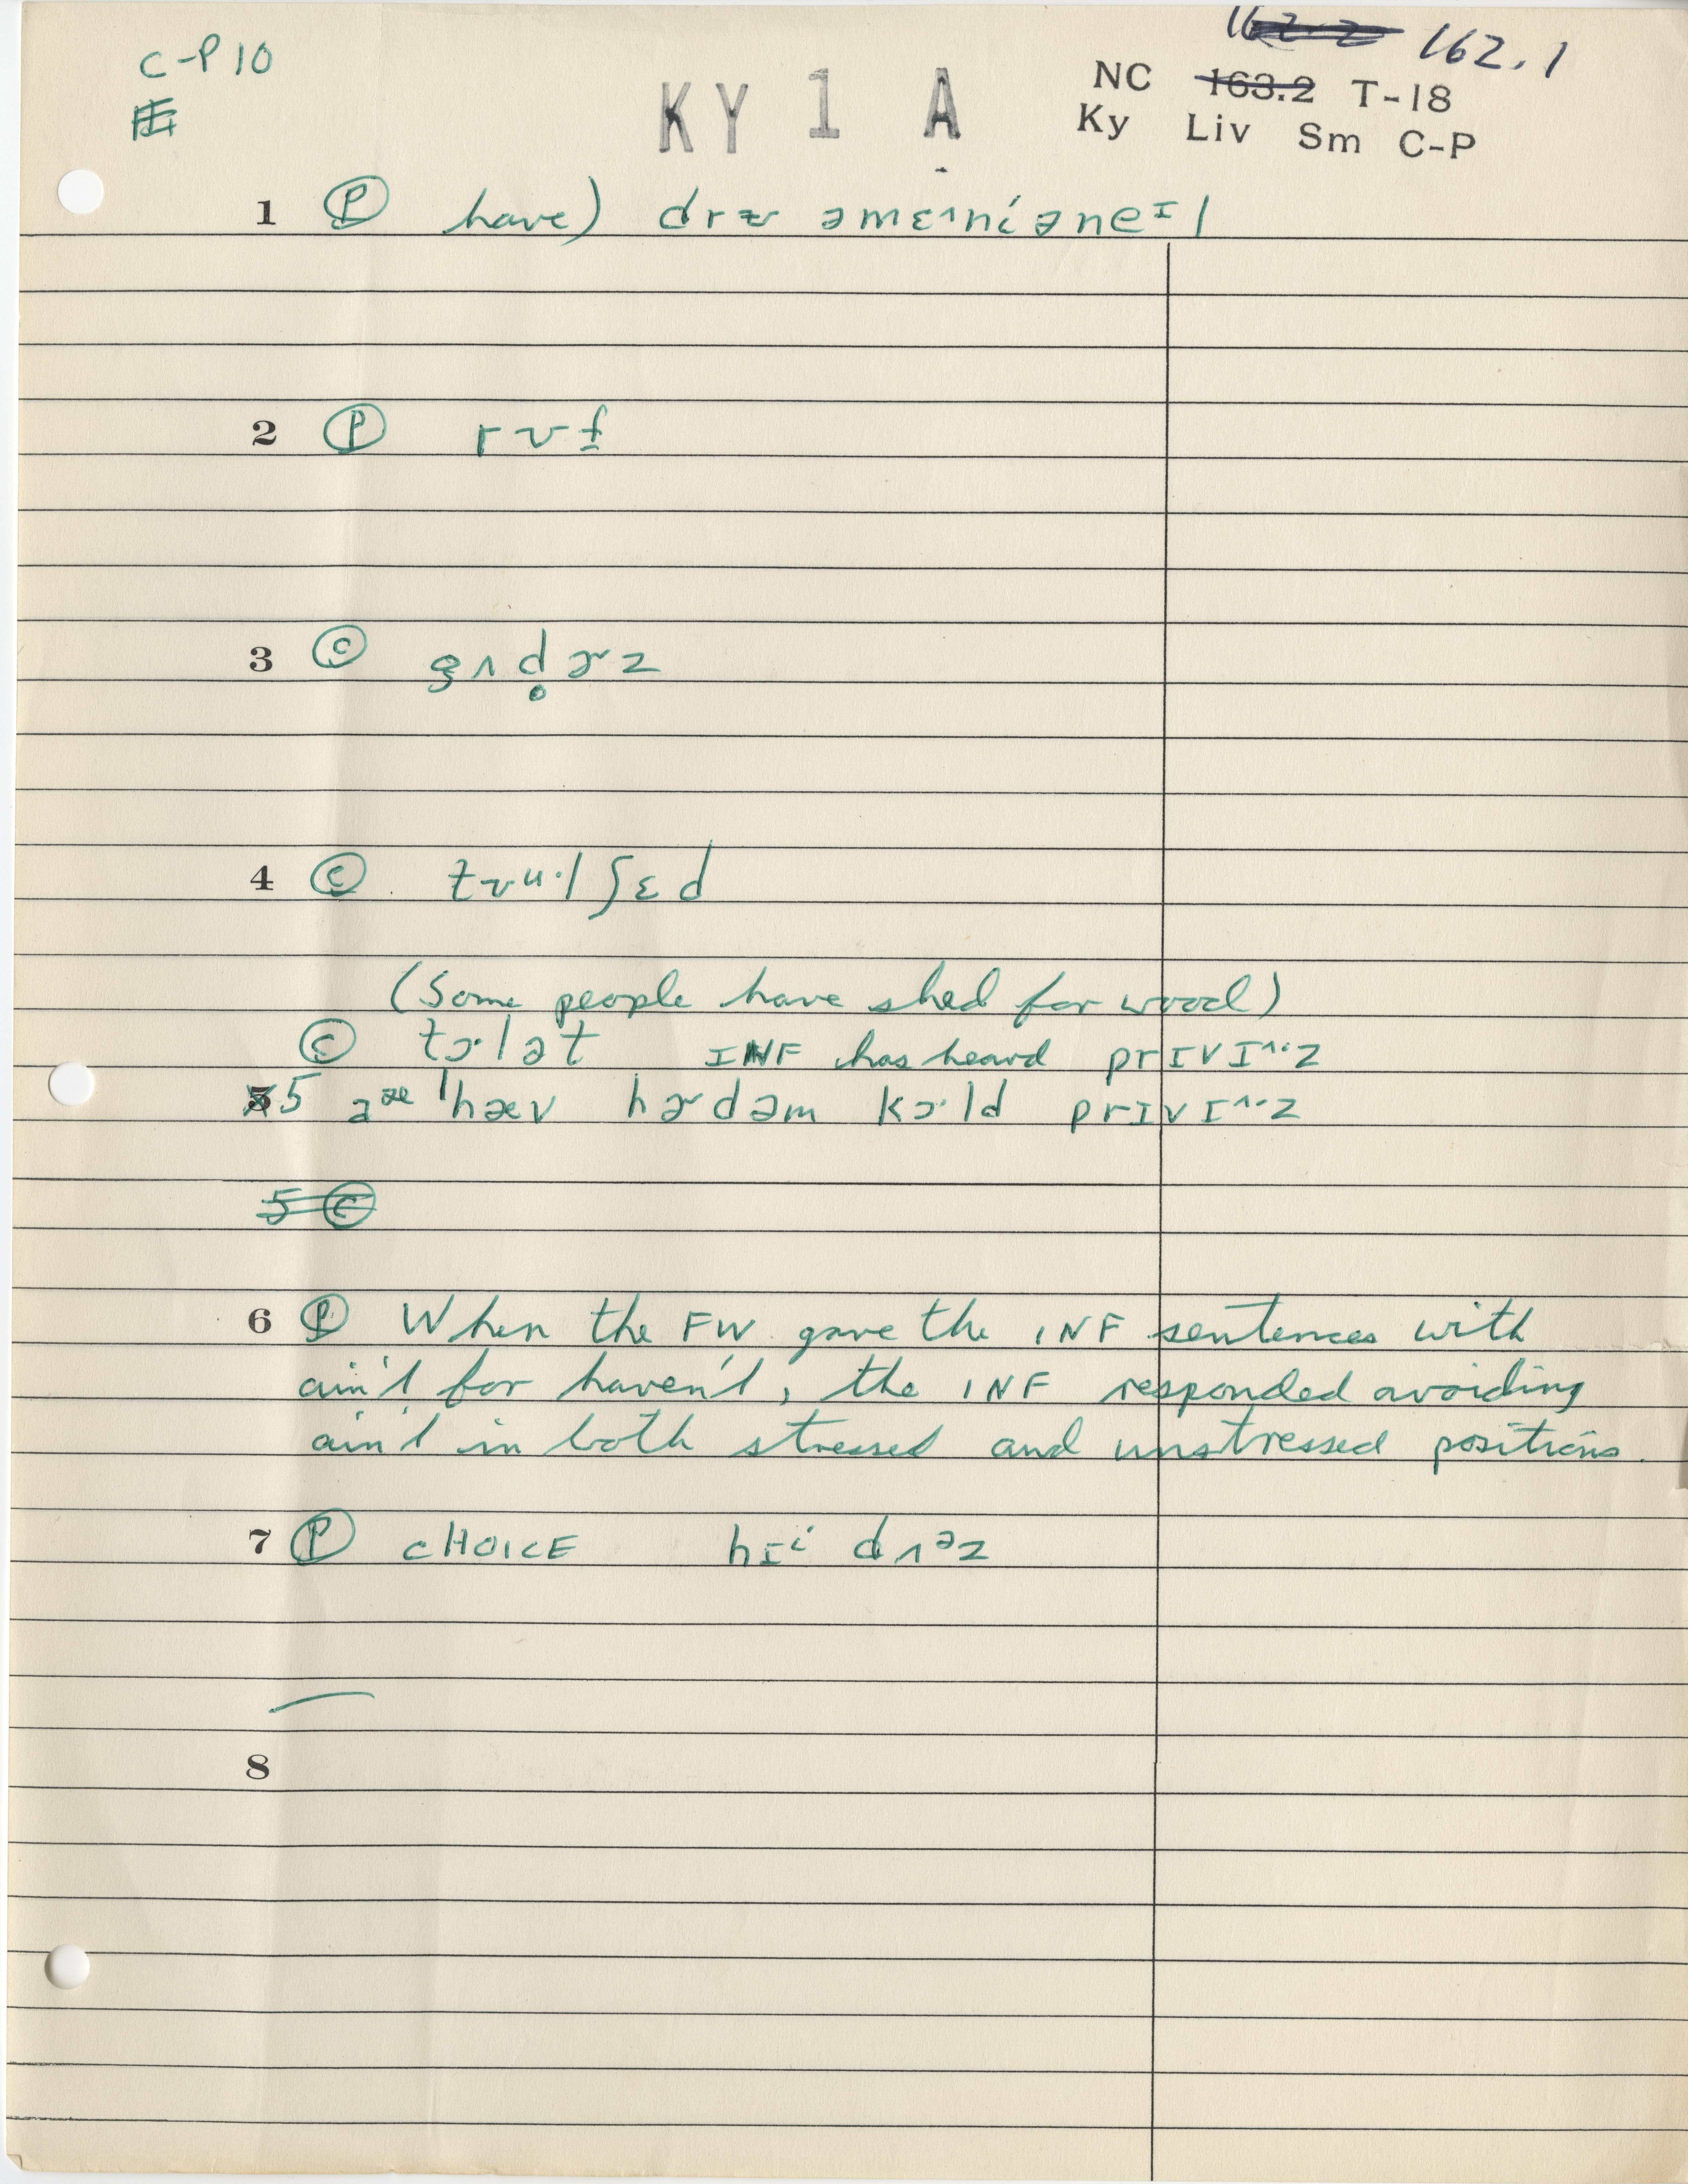 162.1
C-P 10
KY 1 A
NC 163.2 T-18
Ky Liv Sm C-P
1 Ⓟ have)
2 Ⓟ rʊf
3 Ⓒ gʌd̥ɚz
4 Ⓒ tʊᵘ·lʃɛd
(Some people have shed for wood)
Ⓒ tɔ·lət INF has heard prɪvɪ^·z
5 əᵆ ˈhæv hɚdəm kɔ·ld prɪvɪ^·z
5 Ⓒ
6 Ⓟ When the FW gave the INF sentences with
ain't for haven't, the INF responded avoiding
ain't in both stressed and unstressed positions.
7 Ⓟ CHOICE hɪⁱ dʌᵊz
8